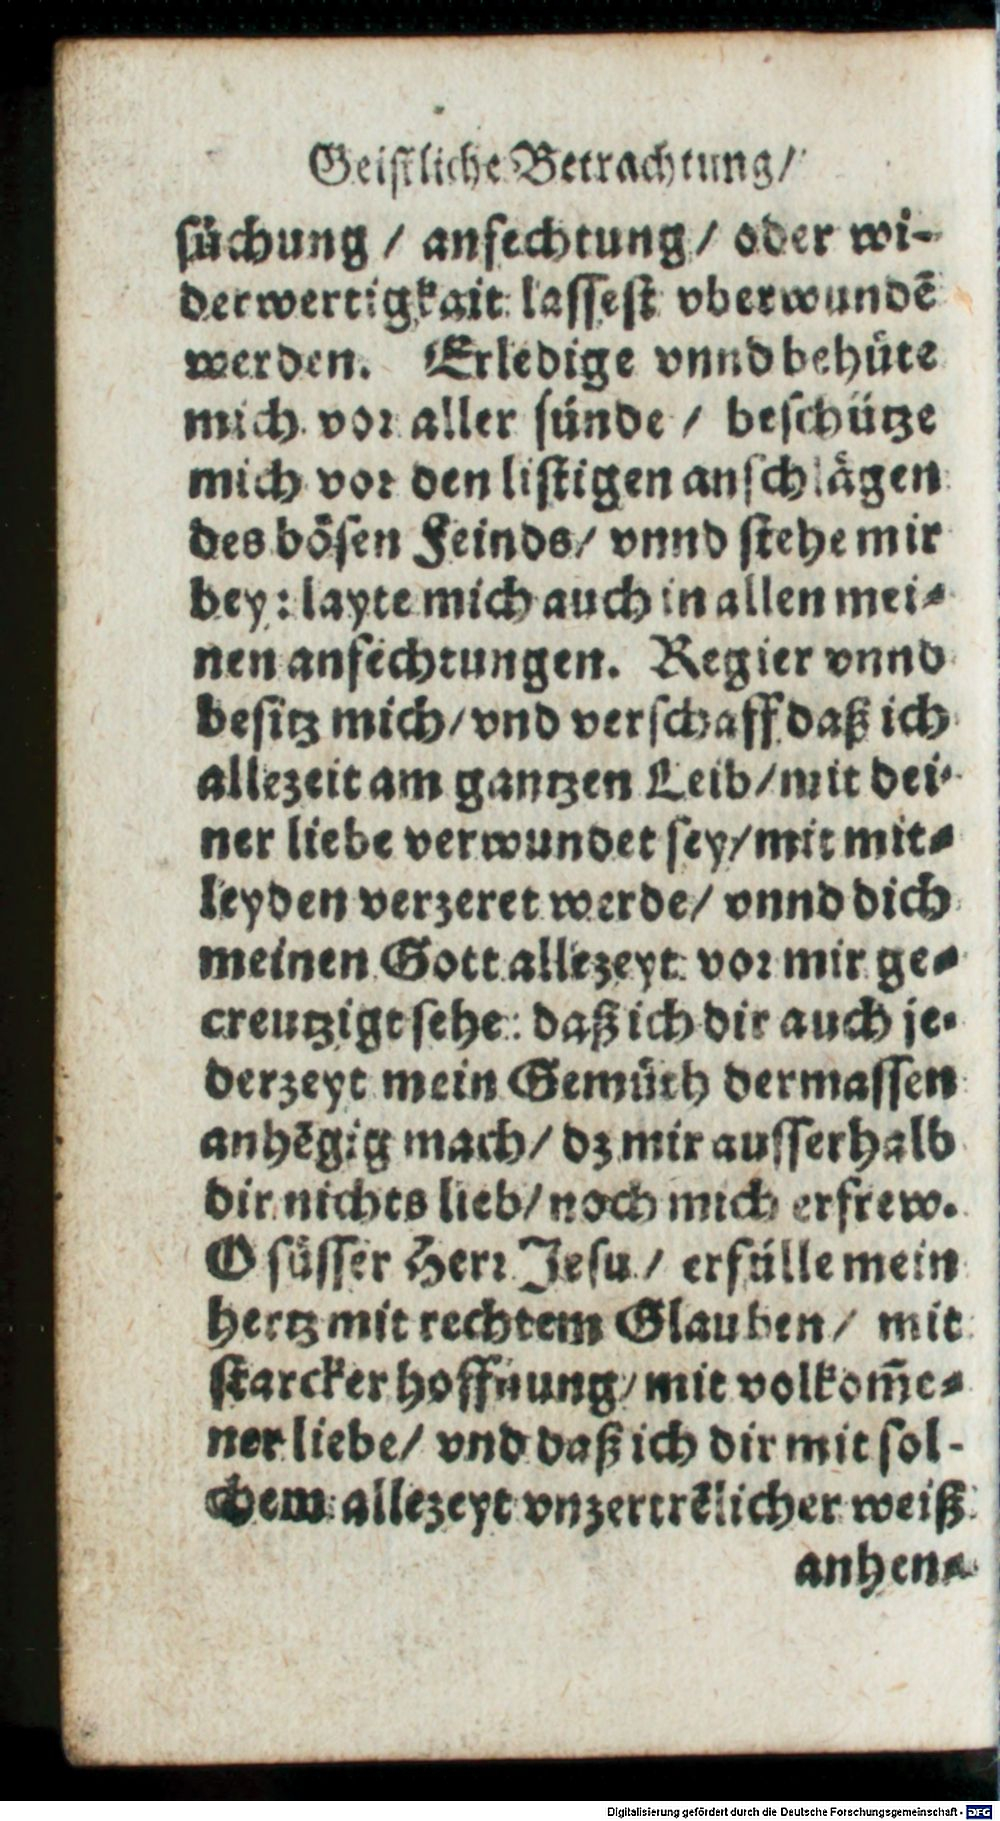 Geistliche Betrachtung/
suͤchung / anfechtung / oder wi-
derwertigkait lassest vberwundē
werden. Erledige vnnd behuͤte
mich vor aller suͤnde / beschuͤtze
mich vor den listigen anschlaͤgen
des boͤsen Feinds / vnnd stehe mir
bey: layte mich auch in allen mei-
nen anfechtungen. Regier vnnd
besitz mich / vnd verschaff daß ich
allezeit am gantzen Leib / mit dei-
ner liebe verwundet sey / mit mit-
leyden verzeret werde / vnnd dich
meinen Gott allezeyt vor mir ge-
creutzigt sehe: daß ich dir auch je-
derzeyt mein Gemuͤth dermassen
anhēgig mach / dz mir ausserhalb
dir nichts lieb / noch mich erfrew.
O suͤsser Herr Jesu / erfuͤlle mein
hertz mit rechtem Glauben / mit
starcker hoffnung / mit volkom̄e-
ner liebe / vnd daß ich dir mit sol-
chem allezeyt vnzertrēlicher weiß
anhen-
Digitalisierung gefördert durch die Deutsche Forschungsgemeinschaft - DFG